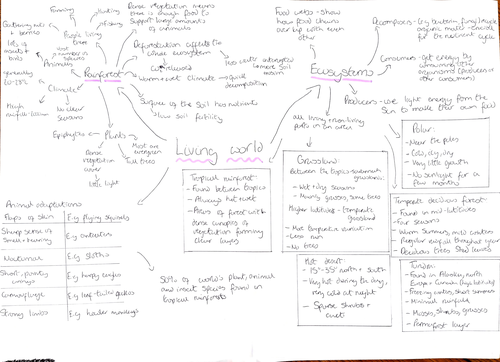 Farming
Hunting
Fishing
Gathering nuts + berries
People living there
Dense vegetation means
there is enough food to
support large amounts of
animals
Lots of
insects + birds
Most
number of
species
Animals
Deforestation affects the
whole ecosystem
Rainforest
Climate
Warm + wet climate
quick
decomposition
High
rainfall
No clear
seasons
Surface of the soil has nutrients
low soil fertility
Epiphytes
Plants
Most are
evergreen
tall trees
Dense
vegetation
cover
little light
Living world
Food webs - Show
how food chains
overlap with each
other
Ecosystems
Decomposers
Consumers - get energy by
consuming other
organisms (producers or
other consumers)
Producers - use light energy from the
sun to make their own food
all living + non-living
parts in an area
Tropical rainforest:
- Found between tropics
- Always hot + wet
dense canopies of
vegetation forming
clear layers
Grassland:
Between the tropics: savannah
grasslands
- Wet + dry seasons
- Mainly grasses, some trees
Higher latitudes - temperate
grassland
- More temperature variation
- Less rain
- No trees
Polar:
- Near the poles
- Cold, icy, dry
- Very little growth
- No sunlight for a
few months
Temperate deciduous forest
- Found in mid-latitudes
- Four seasons
- Warm summers, mild winters
- Regular rainfall throughout year
- Deciduous trees shed leaves
Hot desert
- 15°-35° north + south
- Very hot during the day,
very cold at night
- Sparse shrubs +
cacti
Tundra:
- Freezing winters, short summers
- Minimal rainfall
- Mosses, shrubs, grasses
- Permafrost layer
Animal adaptations
Flaps of skin E.g flying squirrels
Sharp sense of
smell + hearing E.g anteaters
Nocturnal E.g Sloths
Short, pointy
wings E.g harpy eagles
Camouflage E.g leaf-tailed geckos
Strong limbs E.g howler monkeys
50% of world's plant, animal
and insect species found in
tropical rainforests